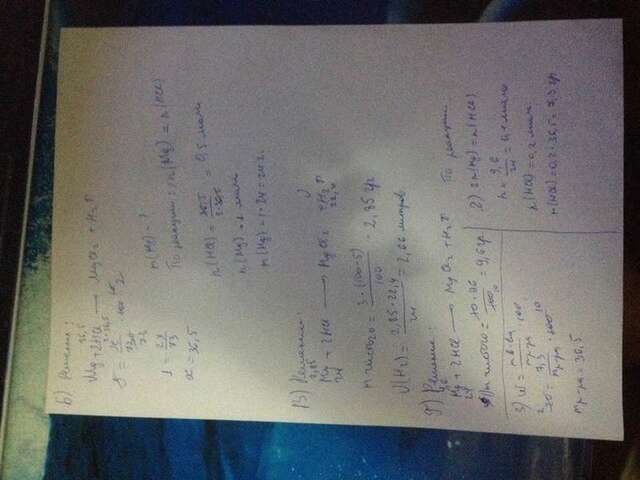 б) Решение:
Mg + 2HCl → MgCl₂ + H₂↑
1 = x/73
x = 36,5
m(Mg) - ?
По реакции: n(Mg) = n(HCl)
n(HCl) = 36,5 / 2·36,5 = 0,5 моль
n(Mg) = 1 моль
m(Mg) = 1 · 24 = 24 г.
В) Решение:
Mg + 2HCl → MgCl₂ + H₂↑
24 22,4
m чистого = 3·(100-5) / 100 = 2,85 гр
V(H₂) = 2,85·22,4 / 24 = 2,66 литров
Решение:
Mg + 2HCl → MgCl₂ + H₂↑
m чистого = 10·96 / 100 = 9,6 гр
По реакции
2) 2n(Mg) = n(HCl)
n = 9,6 / 24 = 0,4 моль
n(HCl) = 0,2 моль
m(HCl) = 0,2·36,5 = 7,3 гр
3) W = m в-ва / m р-ра · 100
20 = 7,3 / m р-ра · 100
m р-ра = 36,5